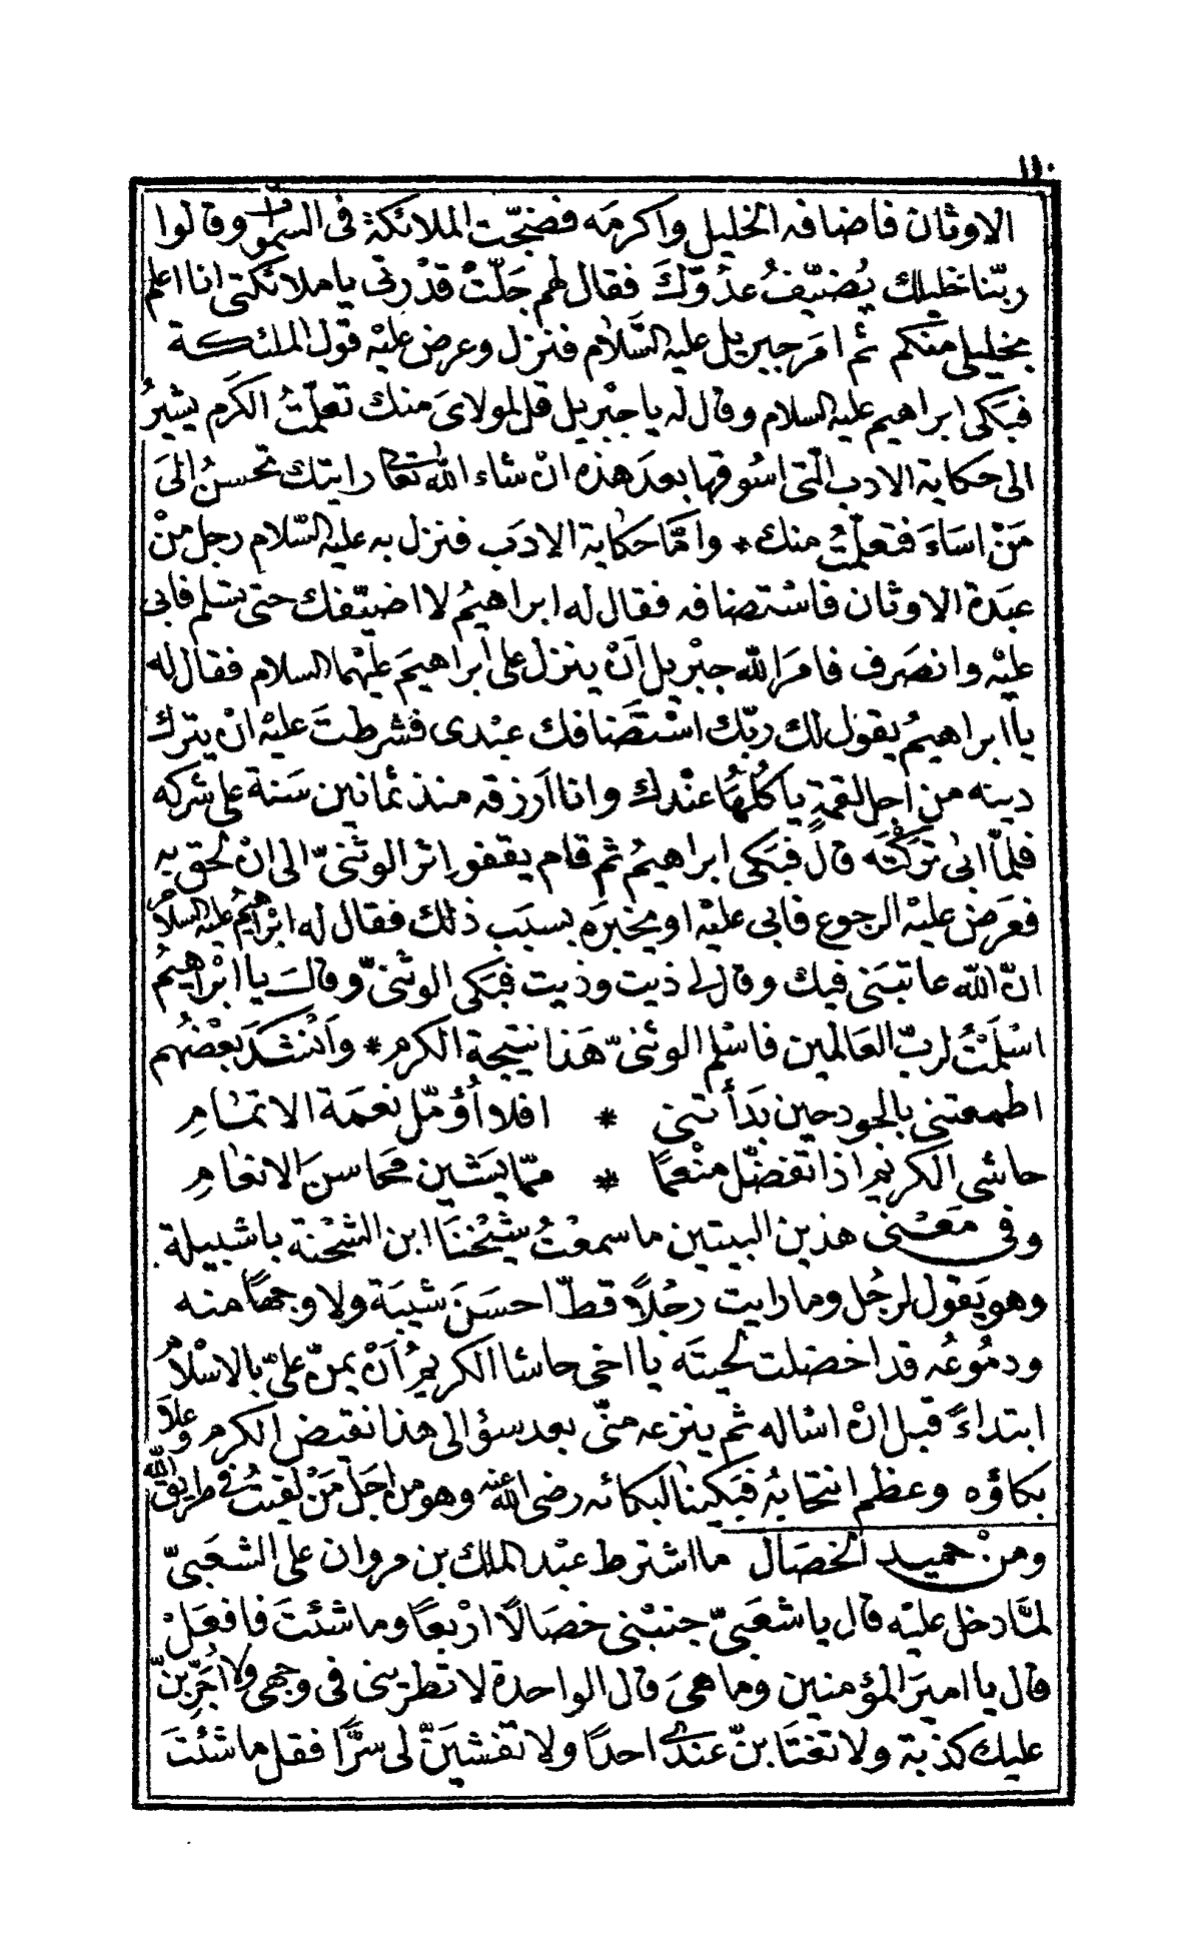 ١١٠
الاوثان فاضافه الخليل واكرمَه فضجّت الملائكة فى السموات وقالوا
ربّنا خليلك يُضيّفُ عدُوّكَ فقال لهم جَلّتْ قدْرتى يا ملائكتى انا اعلم
بخليلى منكم ثم امَر جبريل عليه السَّلام فنزل وعرض عليْه قول الملئكة
فبكى ابراهيم عليه السلام وقال له يا جبْريل قل لمولاىَ منك تعلّمتُ الكرَم يشيرُ
الى حكاية الادب الّتى اسُوقها بعدَ هذه انْ شاء اللّٰه تعالى رايتك تحسنُ الىَ
مَنْ اساءَ فتعلّمتُ منك * وامّا حكاية الادَب فنزل به عليه السّلام رجل منْ
عبَدة الاوثان فاسْتضافه فقال له ابراهيمُ لا اضيّفك حتى تسْلم فابى
عليْه وانصَرف فامَرَ اللّٰه جبْريل اَنْ ينزل على ابراهيمَ عليْهما السلام فقال له
يا ابراهيمُ يقول لك ربّك اسْتضَافك عبْدى فشرطتَ عليْه انْ يترك
دينه من اجل لقمةٍ ياكُلهَُا عنْدك وانا ارزقه منذ ثمانين سَنة على شركه
فلمّا ابىٰ تركتَه قال فبَكى ابراهيمُ ثم قام يقفو اِثر الوثنىّ الى انْ لحق به
فعَرض عليْه الرجوع فابى عليْه او يخبرَه بسبَب ذٰلك فقال له ابْراهيمُ عليه السلام
انّ اللّٰه عاتبَنى فيك وقال لى ذيت وذيت فبَكى الوثنىّ وقالَ يا ابْراهيمُ
اسْلمْتُ لربّ العَالمين فاسْلم الوثنىّ هَذا نتيجة الكرم * واَنْشدَ بعْضُهم
اطمعتنى بالجود حين بَدَأتنى * افلا اُؤمّل نعمَة الاتمَامِ
حاشى الكريم اذا تفضّل منْعمًا * ممّا يَشين محَاسنَ الانعَامِ
وفى معْنى هذين البيتين ما سمعْتُ شيْخنَا ابن الشحْنة باشبيلة
وهو يَقول لرجُل وما رايت رجُلاً قطّ احسَنَ شيبَة ولا وجهًا منه
ودمُوعُه قد اخضلت لحيتَه يا اخى حاشا الكريمُ اَنْ يمنّ علىّ بالاسْلام
ابتداءً قبل انْ اسْاله ثم ينزعه منّى بعد سؤالى هذا نقيض الكرم وعلَا
بكاؤه وعظم انتحابُه فبَكينا لبكائه رضى اللّٰه عنه وهو من اجَلّ مَنْ لقيتُ فى طريق اللّٰه
ومنْ حميد الخصَال ما اشترط عبْد الملك بن مروان على الشعَبىّ
لمَّا دخل عليْه قال يا شعَبىّ جنبْنى خصَالًا ارْبعًا وما شئتَ فافعَلْ
قال يا اميرَ المؤمنين وما هىَ قال الواحدة لا تطرينى فى وجهى ولا اُجَرّبنّ
عليك كذبة ولا تغتَابنّ عندى احدًا ولا تفشينَّ لى سرًّا فقل ما شئتَ